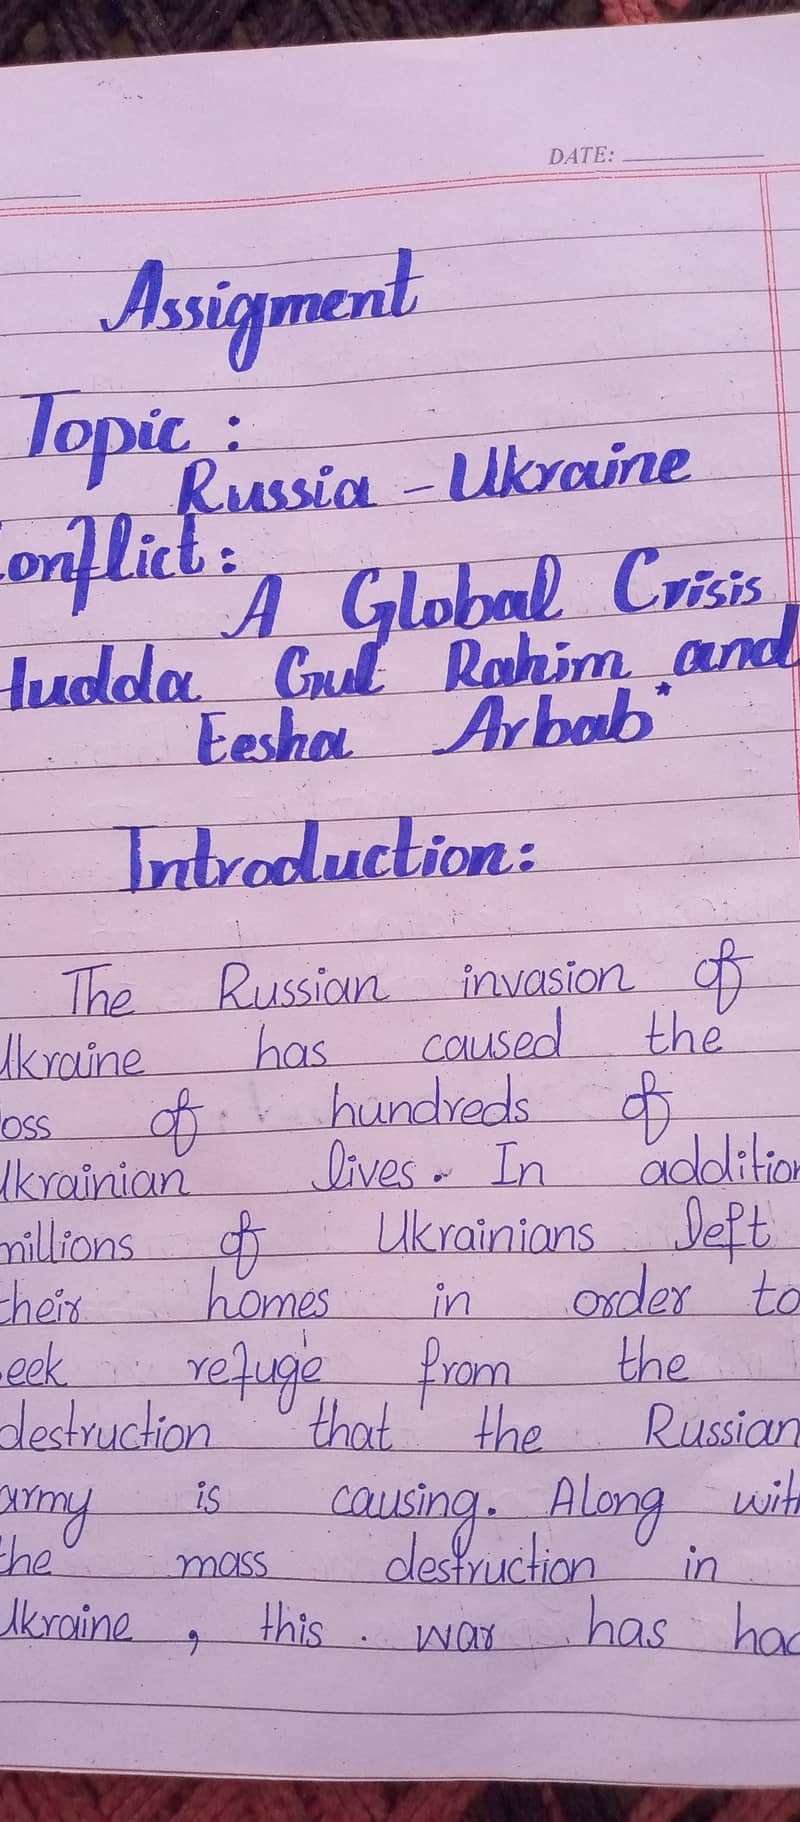 DATE:
Assigment
Topic :
Russia - Ukraine
onflict :
A Global Crisis
Hudda Gul Rahim and
Eesha Arbab*
Introduction:
The Russian invasion of
Ukraine has caused the
oss of hundreds of
Ukrainian lives. In addition
millions of Ukrainians left
their homes in order to
eek refuge from the
destruction that the Russian
army is causing. Along with
the mass destruction in
Ukraine , this war has had